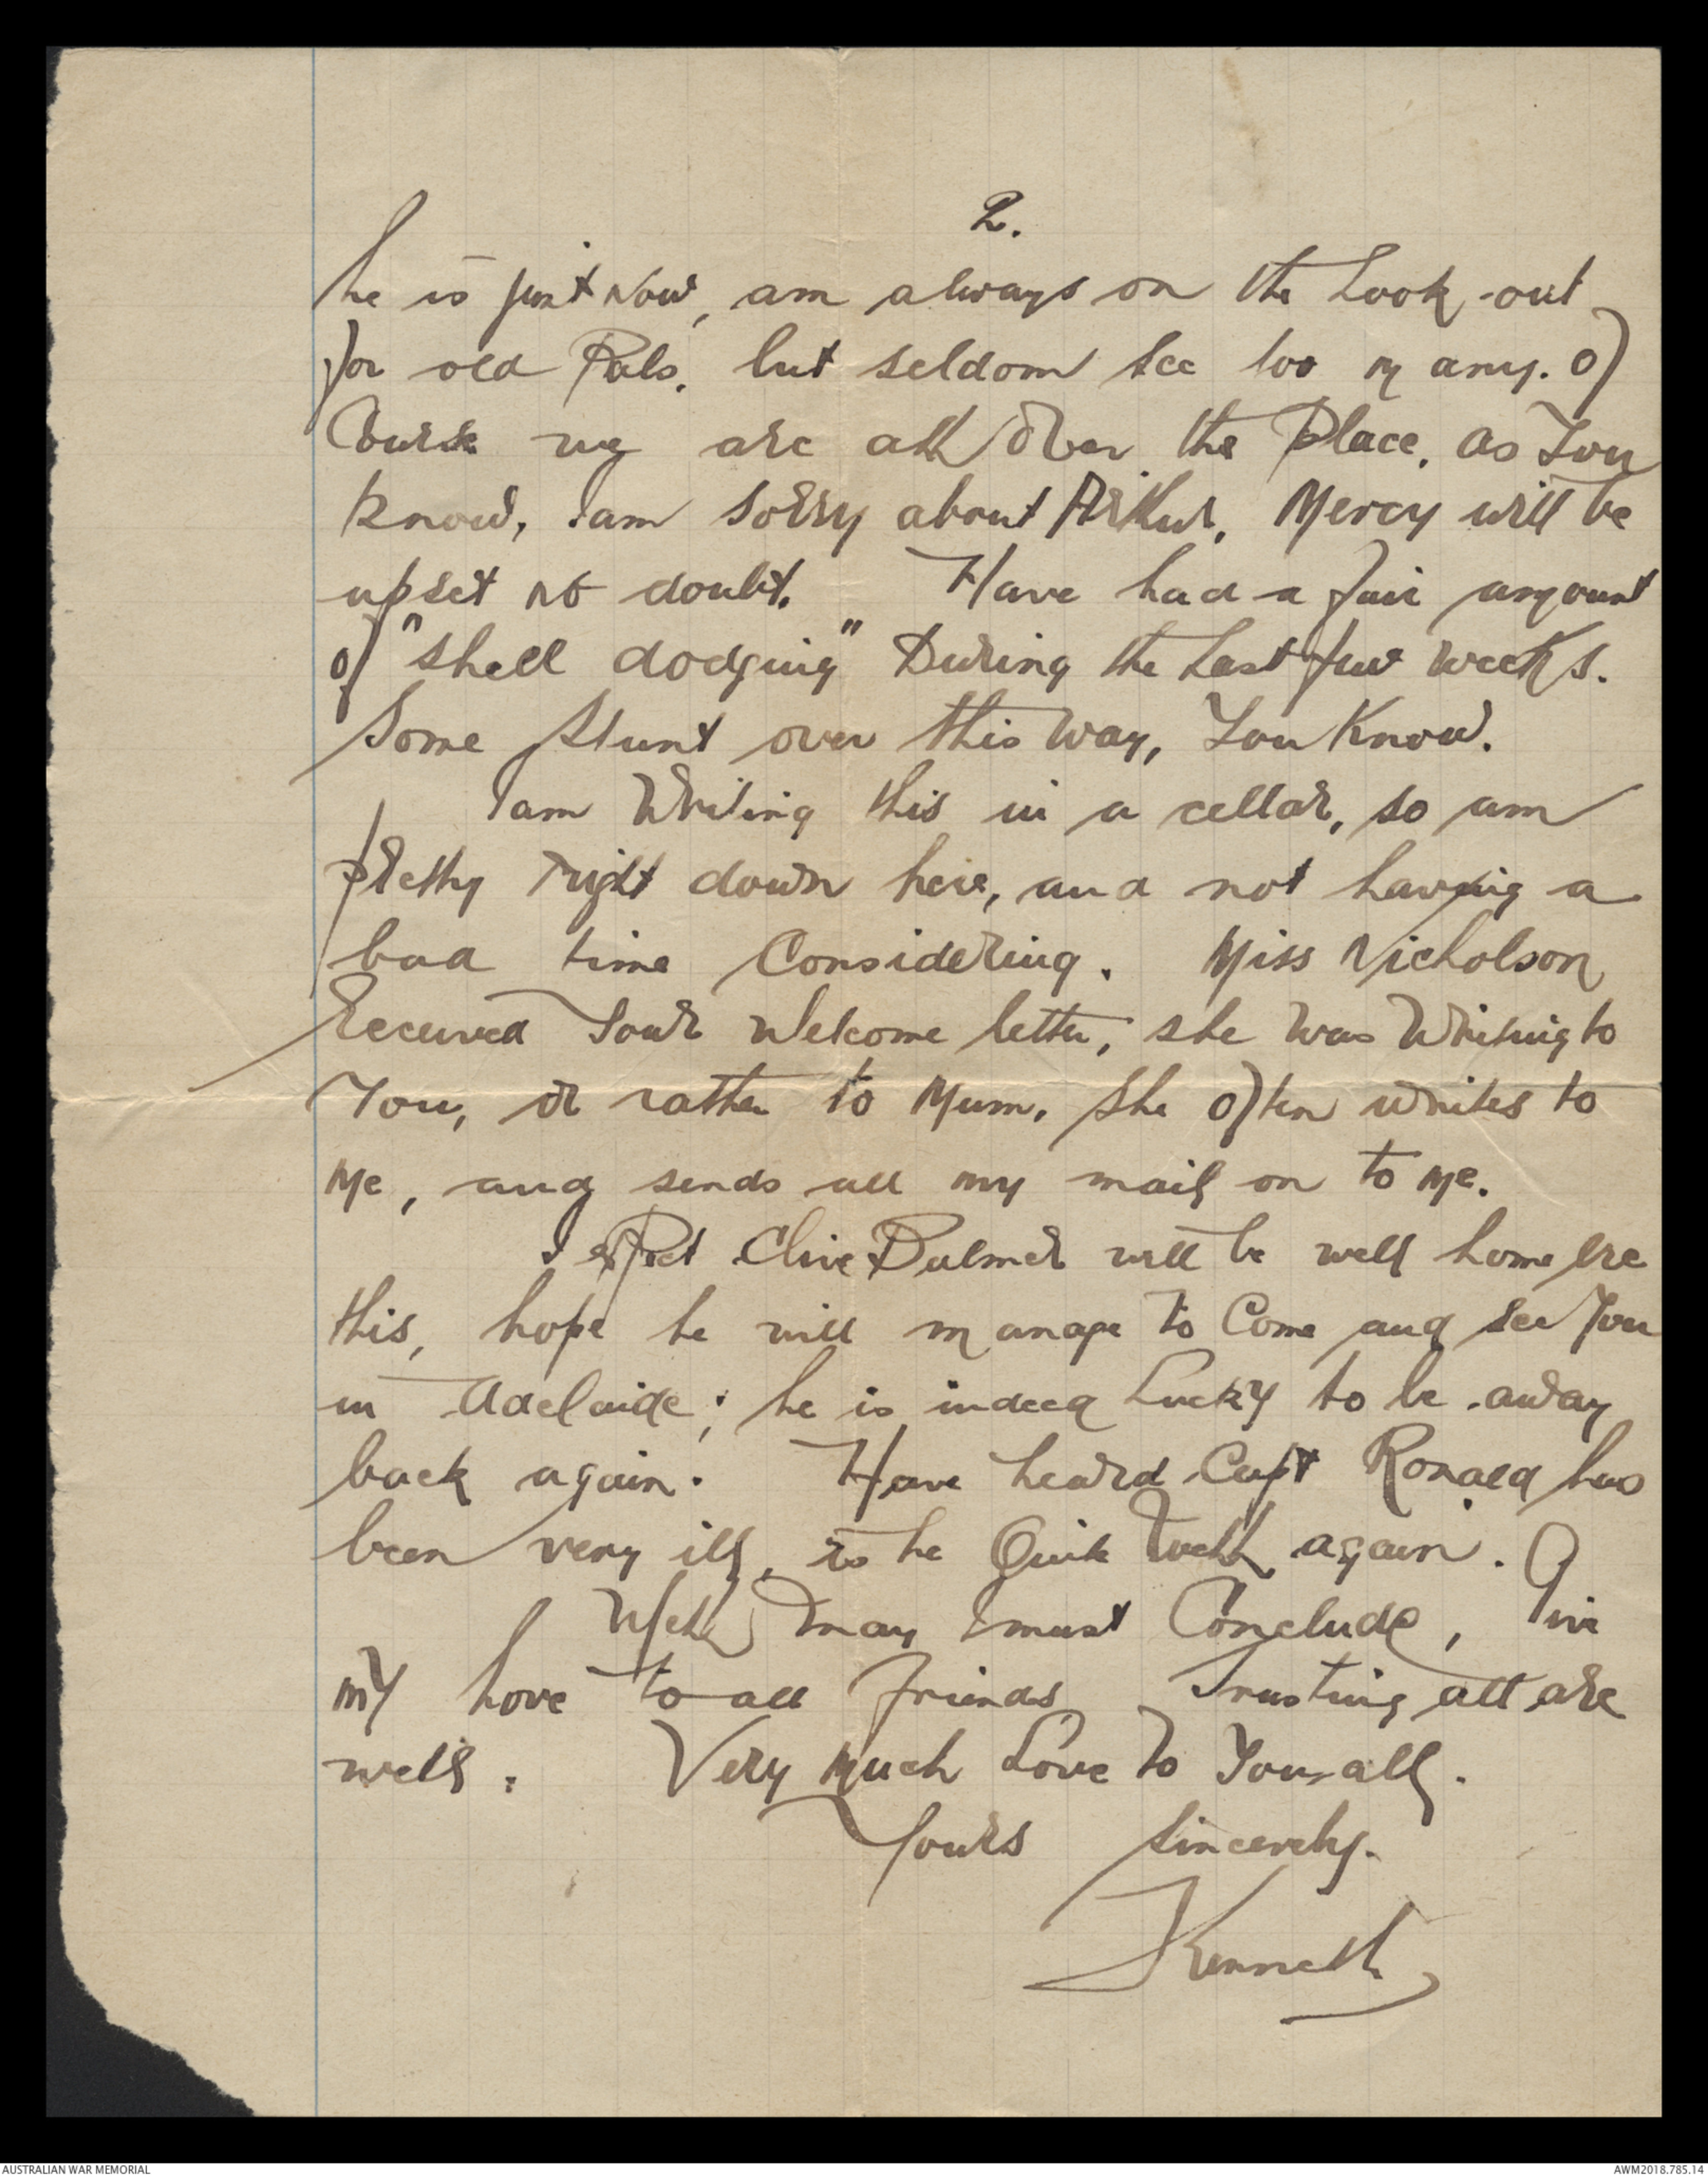 2.
he is just now, am always on the Look-out
for old Pals, but seldom see too many. Of
Course we are all Over the Place, as You
know, I am sorry about Arthur, Mercy will be
upset no doubt. Have had a fair amount
of "shell dodging" During the Last few weeks.
Some stunt over this way, You Know.
I am Writing this in a cellar, so am
pretty right down here, and not having a
bad time Considering. Miss Nicholson
Received Your Welcome letter, she was Writing to
You, or rather to Mum, She often writes to
me, and sends all my mail on to me.
I expect Clive Palmer will be well home ere
this, hope he will manage to Come and see You
in Adelaide; he is indeed Lucky to be away
back again. Have heard Capt Ronald has
been very ill, is he Quite Well again.
Well May I must Conclude, Give
my Love to all friends Trusting all are
well. Very Much Love to You all.
Yours Sincerely.
Kenneth
AUSTRALIAN WAR MEMORIAL
AWM2018.785.14